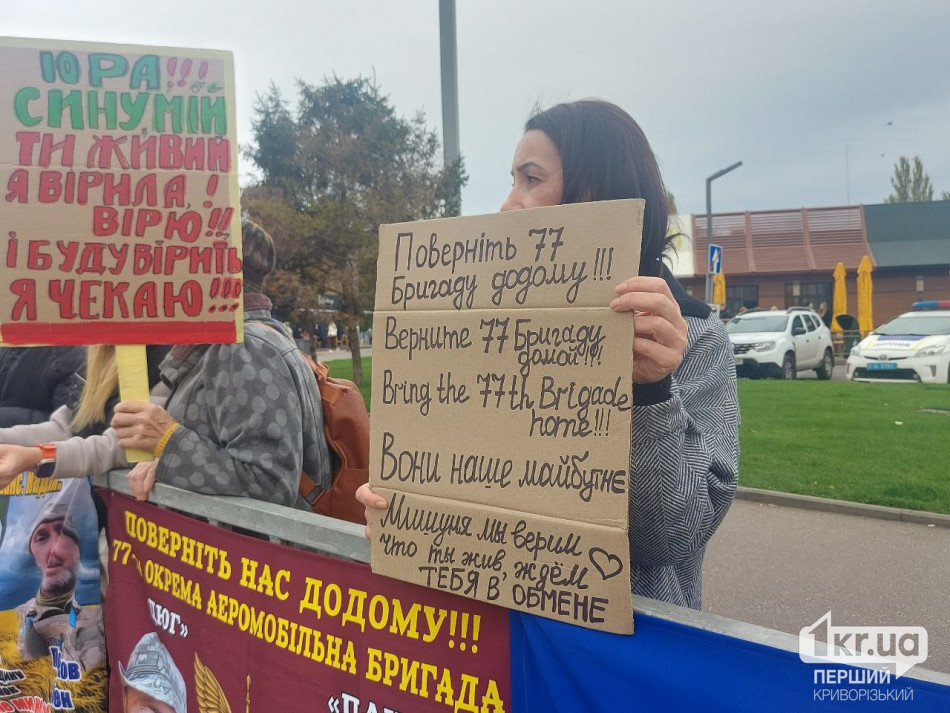 ЮРА!!!
СИНУМІЙ
ТИ ЖИВИЙ
Я ВІРИЛА,
ВІРЮ!!
І БУДУ ВІРИТЬ
Я ЧЕКАЮ!!!
Поверніть 77
Бригаду додому!!!
Верните 77 Бригаду
домой!!!
Bring the 77th Brigade
home!!!
Вони наше майбутнє
Мишуня мы верим
что ты жив, ждём
ТЕБЯ В ОБМЕНЕ
ПОВЕРНІТЬ НАС ДОДОМУ!!!
77 ОКРЕМА АЕРОМОБІЛЬНА БРИГАДА
1kr.ua
ПЕРШИЙ
КРИВОРІЗЬКИЙ